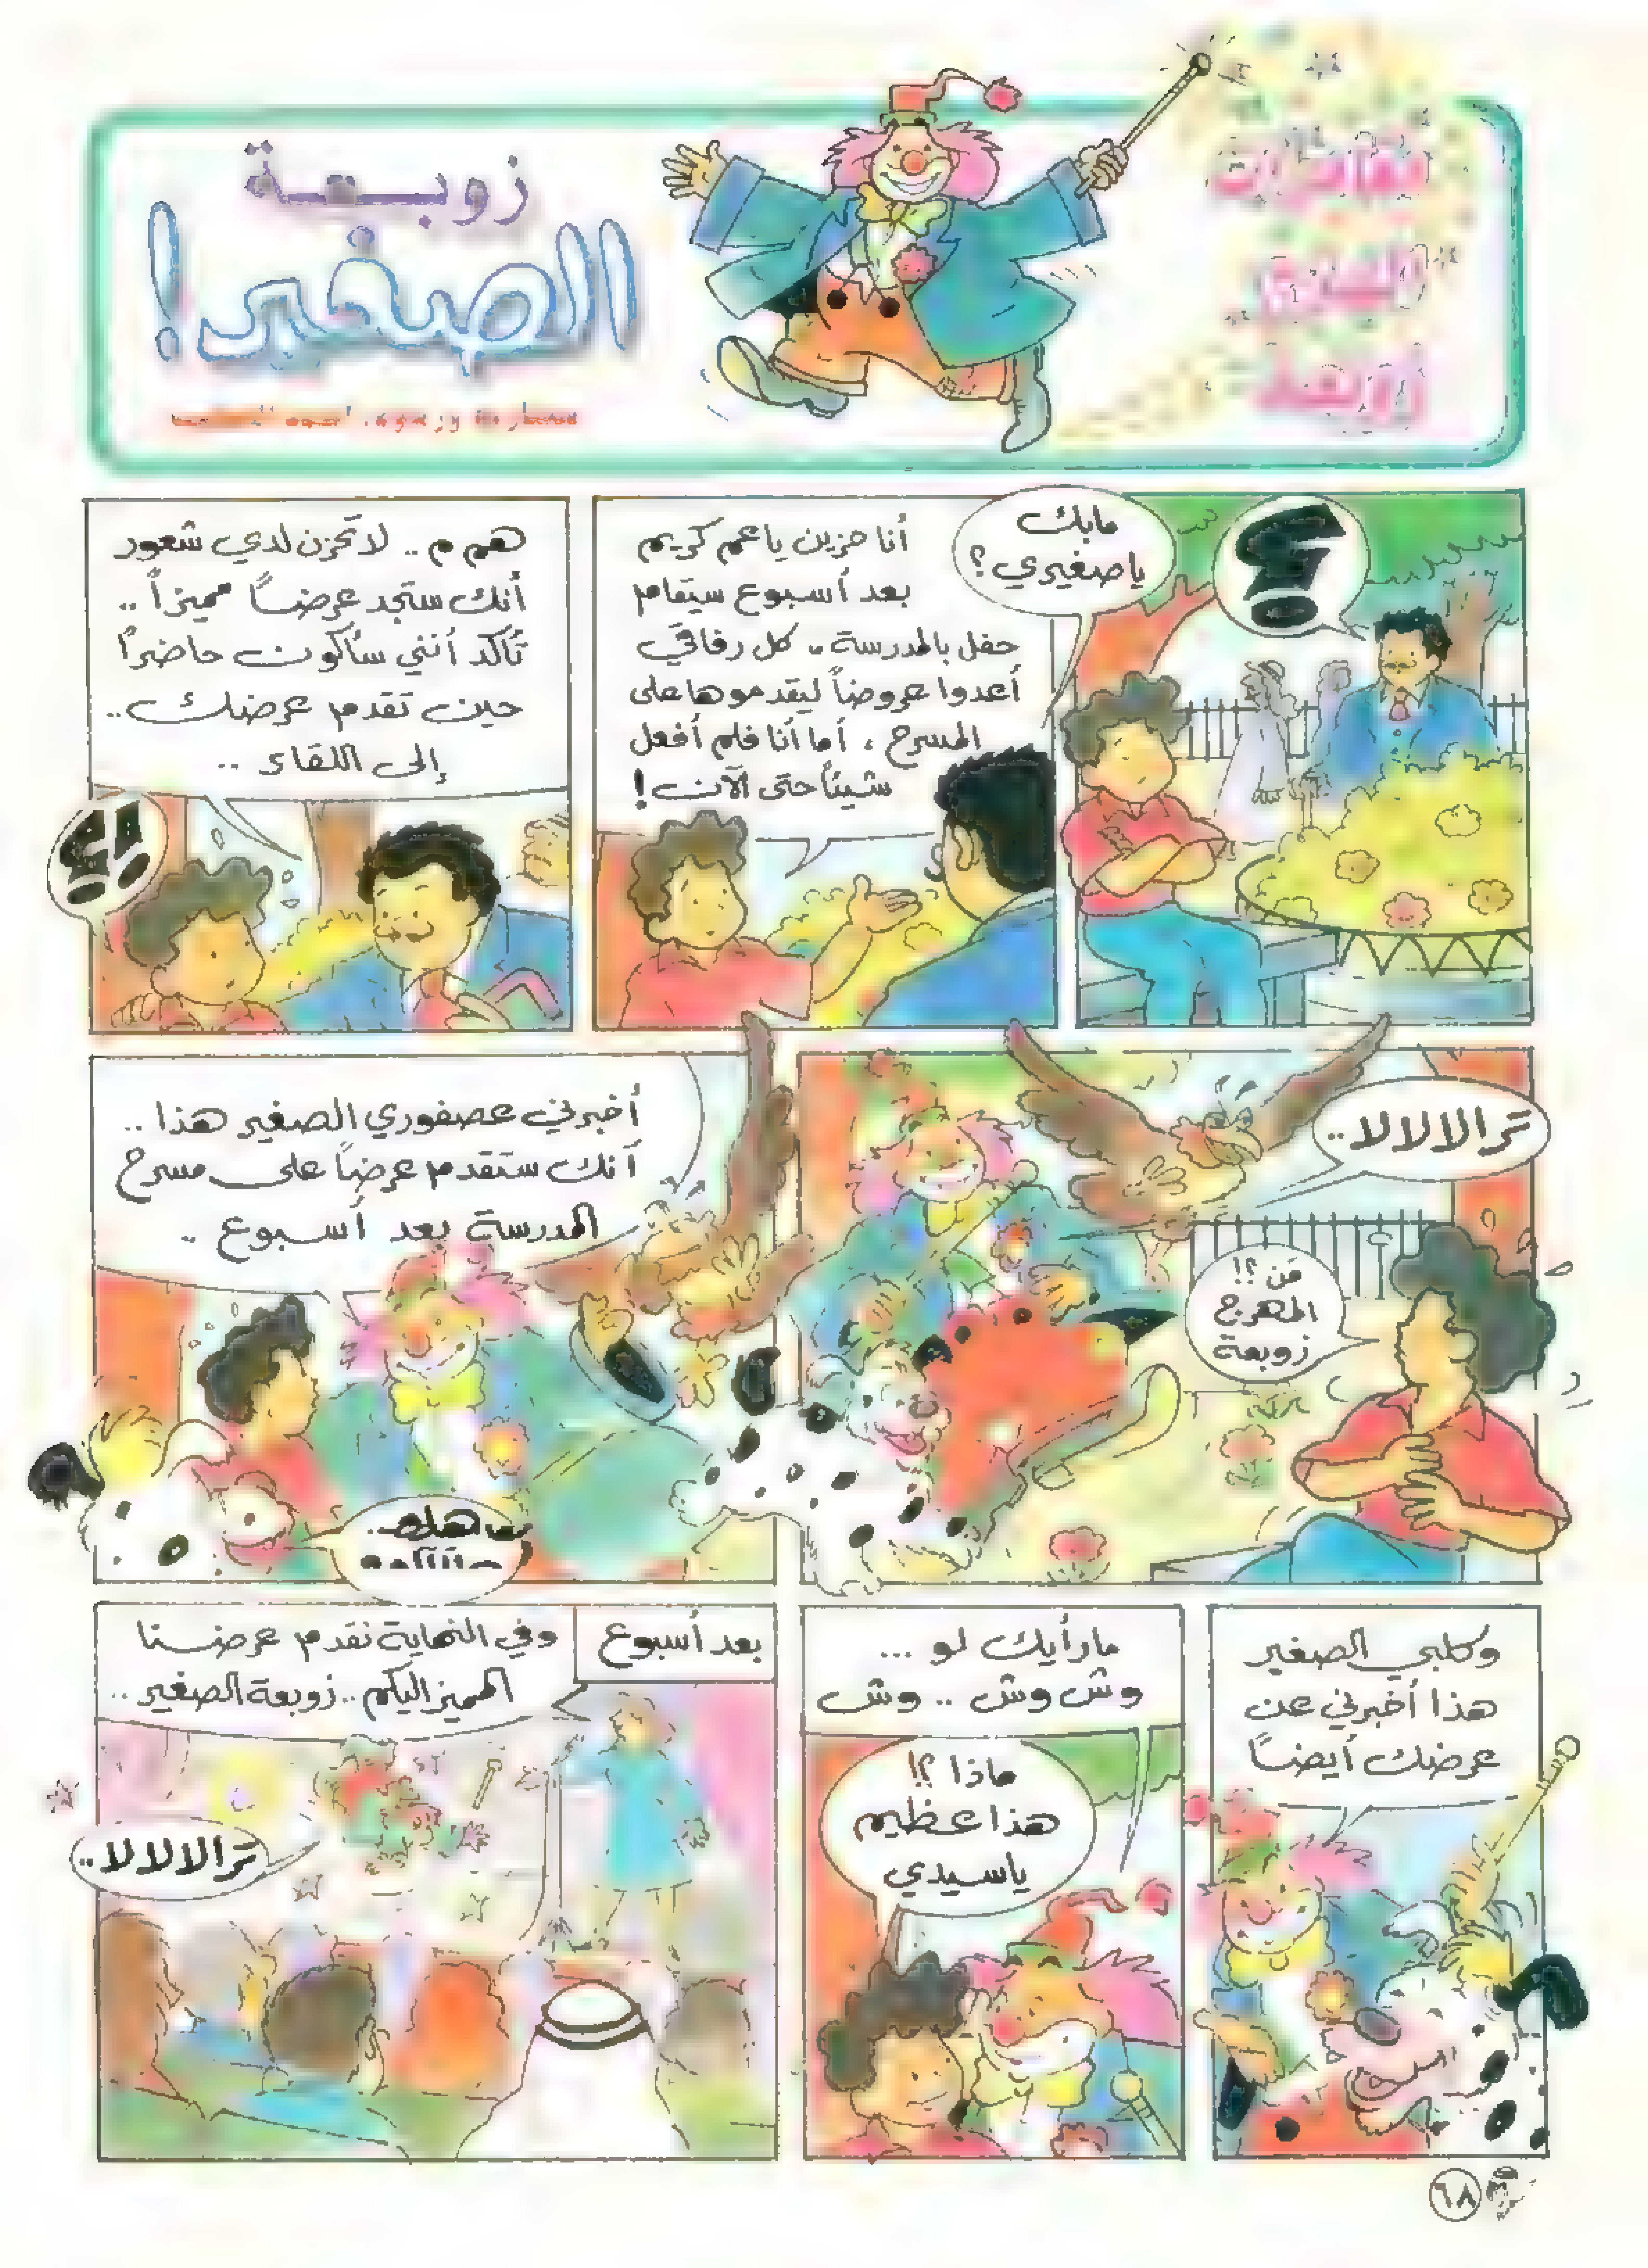 مغامرات
السيد
زوبعة
زوبـعـة
الصغير!
؟!
مابك
ياصغيري؟
أنا حزين ياعم كريم
بعد أسبوع سيقام
حفل بالمدرسة.. كل رفاقي
أعدوا عروضاً ليقدموها على
المسرح، أما أنا فلم أفعل
شيئاً حتى الآن!
همم م .. لا تحزن لدي شعور
أنك ستجد عرضاً مميزاً ..
تأكد أنني سأكون حاضراً
حين تقدم عرضك..
إلى اللقاء ..
؟!
ترالالالا..
من ؟!
المهرج
زوبعة
أخبرني عصفوري الصغير هذا ..
أنك ستقدم عرضاً على مسرح
المدرسة بعد أسبوع ..
وكلبي الصغير
هذا أخبرني عن
عرضك أيضاً
مارأيك لو ...
وش وش .. وش
ماذا ؟!
هذا عظيم
ياسيدي
بعد أسبوع
وفي النهاية نقدم عرضنا
المميز إليكم .. زوبعة الصغير ..
ترالالالا..
٦٨